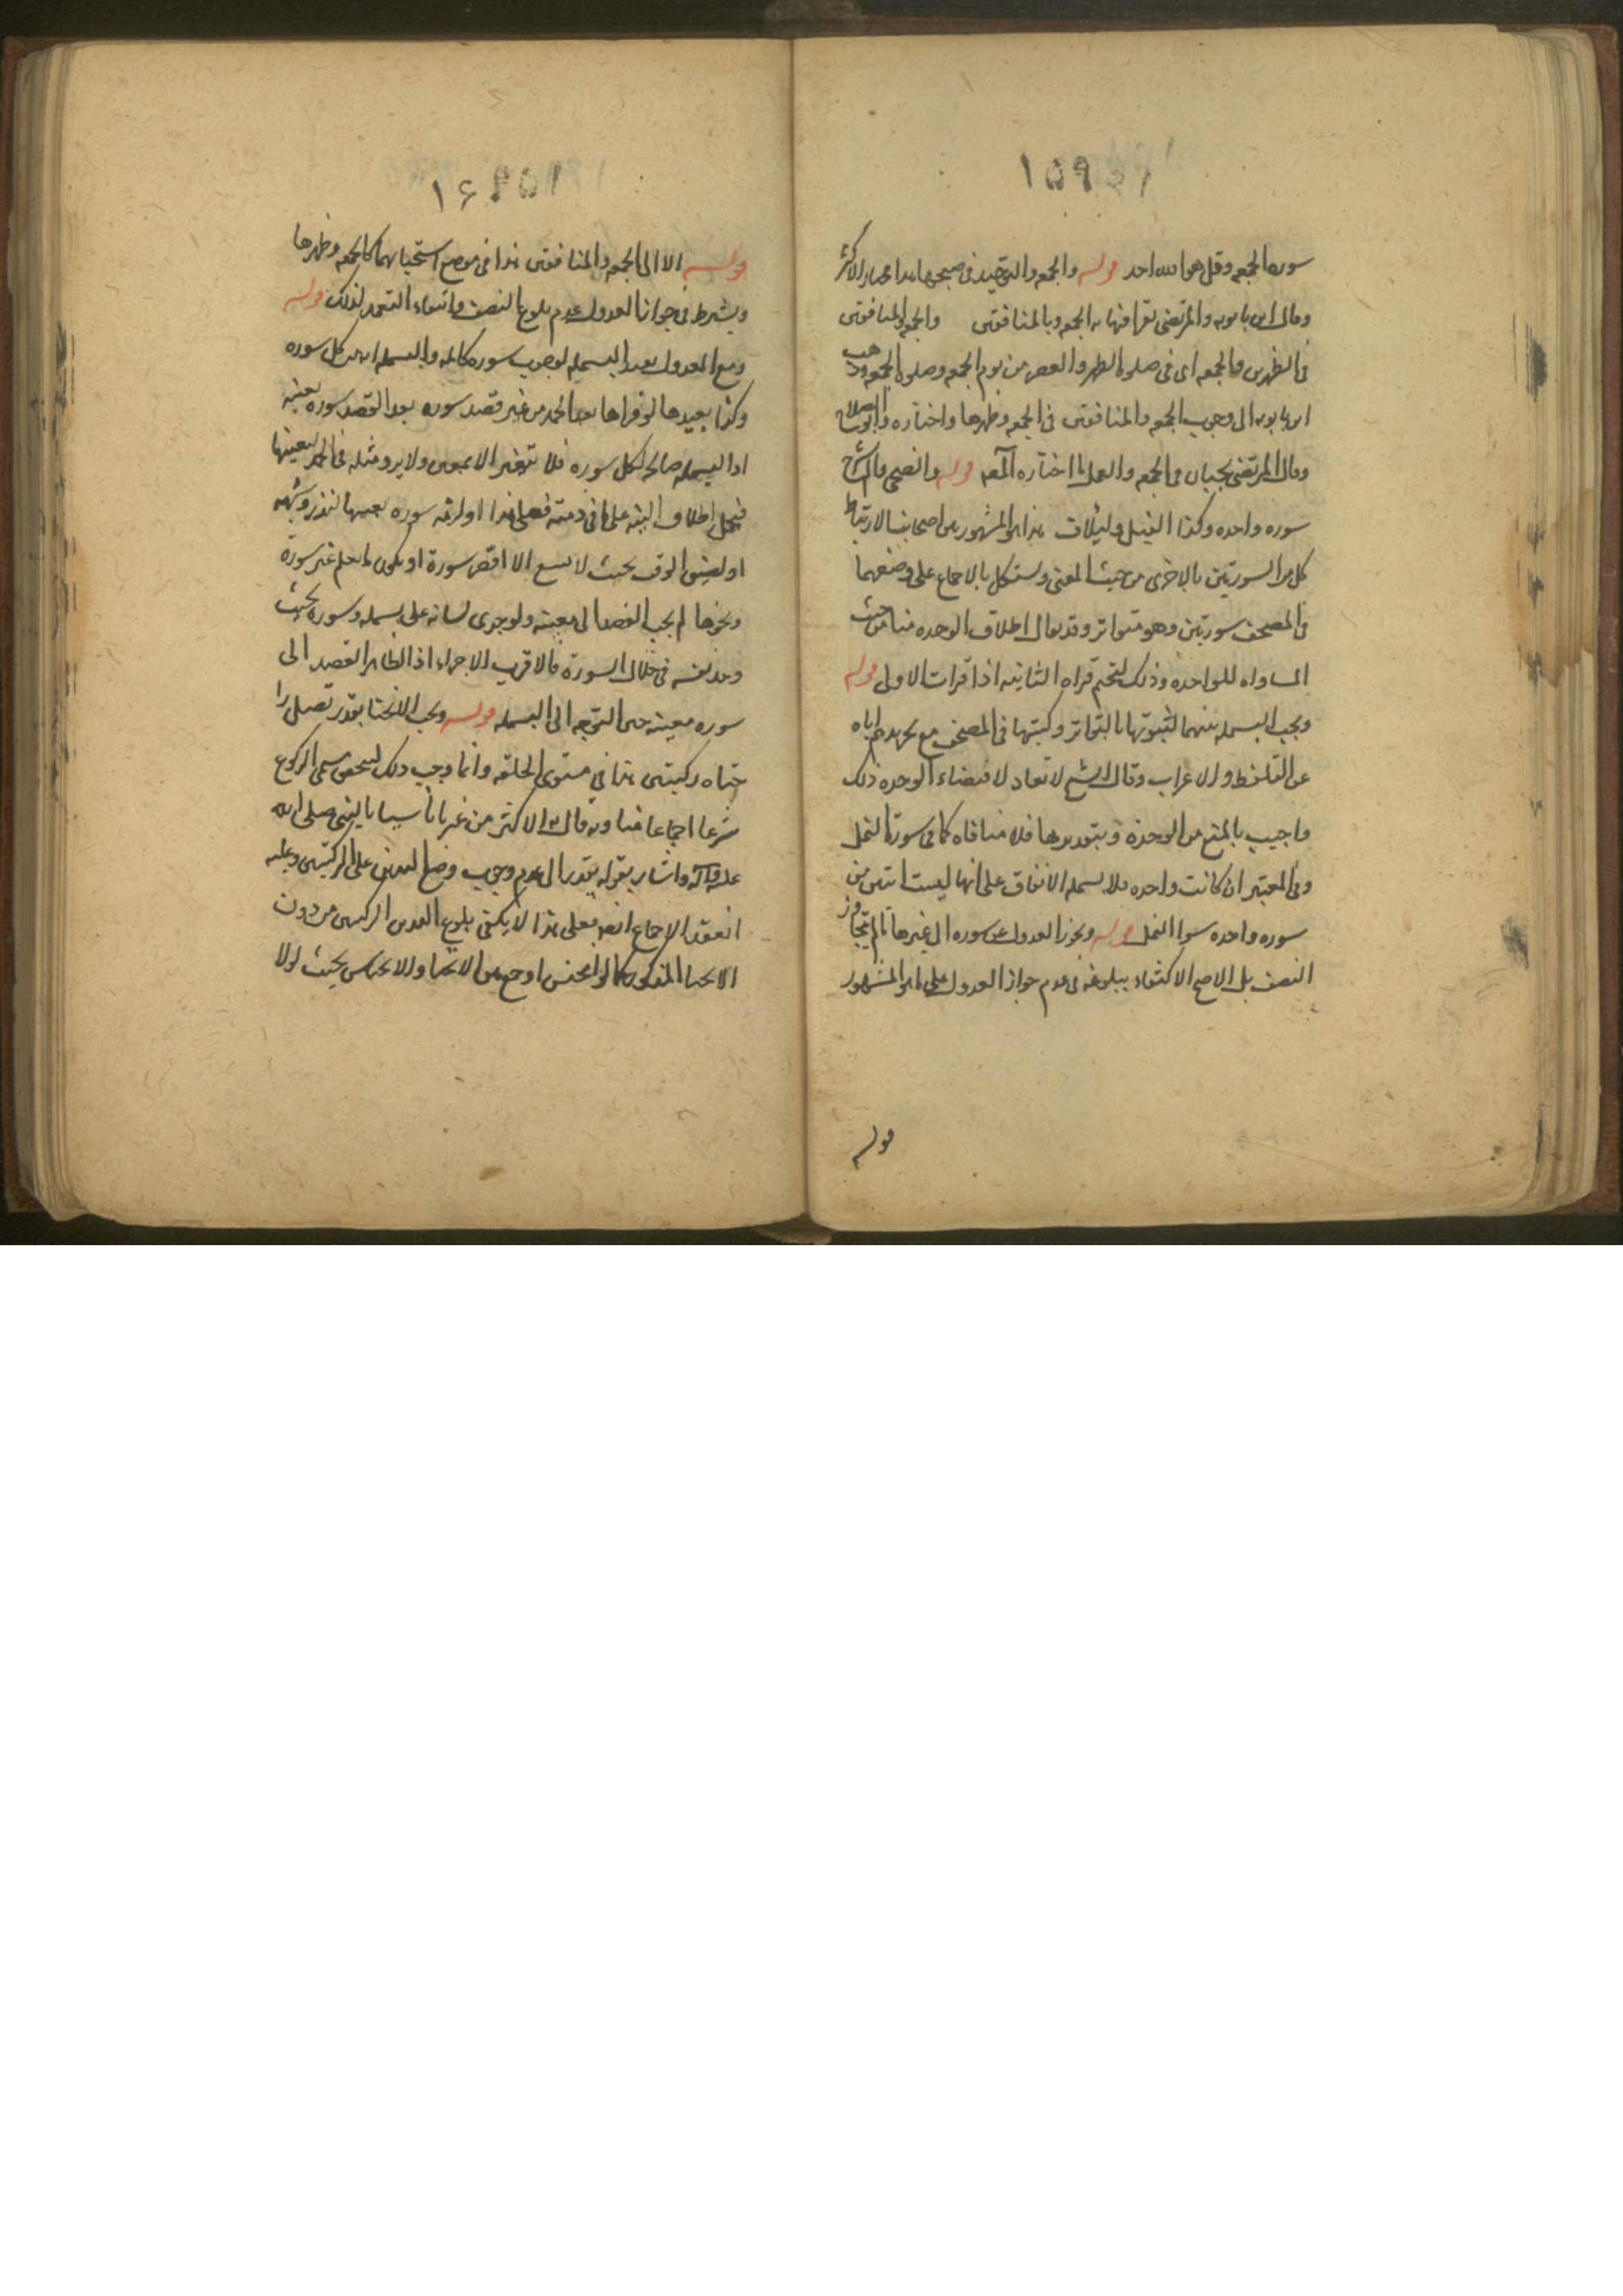 ١٥٩
سورة الجمعه وقل هو الله احد قوله والجمعه والتوحيد فى صبحها هذا اختيار الاكثر
وقال ابن بابويه والمرتضى يقرا فيها بالجمعه وبالمنافقين والجمعه والمنافقين
فى الظهرين والجمعه اى فى صلوة الظهر والعصر من يوم الجمعه وصلوة الجمعه وذهب
ابن بابويه الى وجوب الجمعه والمنافقين فى الجمعه وظهرها واختاره وابو الصلاح
وقال المرتضى يجبان فى الجمعه والعمل بما اختاره المصنف قوله والضحى والم نشرح
سوره واحده وكذا الفيل ولئيلاف هذا هو المشهور بين اصحابنا لارتباط
كل من السورتين بالاخرى من حيث المعنى ويشكل بالاجماع على وضعهما
فى المصحف سورتين وهو متواتر وقد يقال اطلاق الوحده منا من حيث
المساواه للواحده وذلك لتحتم قراه الثانيه اذا قرات الاولى قوله
ويجب البسمله بينهما لثبوتها بالتواتر وكتبتها فى المصحف مع تجريدهم اياه
عن النقط والاعراب وقال الشيخ لا تعاد لاقتضاء الوحده ذلك
واجيب بالمنع من الوحدة وبتقديرها فلا منافاه كما فى سورة النمل
وفى المعتبر ان كانت واحده فلا بسمله للاتفاق على انها ليست ايتين من
سوره واحده سوا النمل قوله ويجوز العدول عن سوره الى غيرها ما لم يتجاوز
النصف بل الاصح الاكتفاء ببلوغه فى عدم جواز العدول على ما هو المشهور
قوله
١۶
قوله الا الى الجمعه والمنافقين هذا فى موضع استحبابهما كالجمعه وظهرها
ويشترط فى جواز العدول عدم بلوغ النصف وانتفاء التعمد لذلك قوله
ومع العدول يعيد البسمله لوجوب سوره كامله والبسمله ايه من كل سوره
وكذا يعيدها لو قراها بعد الحمد من غير قصد سوره بعد القصد سوره معينه
اذ البسمله صالحه لكل سوره فلا تتعين الا بمعين ولا يرد مثله فى الحمد لتعينها
فيحمل اطلاق النيه على ما فى ذمته فعلى هذا لو لزمه سوره بعينها لنذر وشبهه
او لضيق الوقت بحيث لا يسع الا اقصر سورة او يكون لا يعلم غير سورة
ونحوها لم يجب القصد الى معينه ولو جرى لسانه على بسمله وسوره بحيث
وجد نفسه فى خلال السورة فالاقرب الاجزاء اذ الظاهر القصد الى
سوره معينه حين التوجه الى البسمله قوله ويجب الانحنا بقدر تصل را
حتاه ركبتيه هذا فى مستوى الخلقه وانما وجب ذلك ليتحقق مسمى الركوع
شرعا اجماعا منا وبه قال الاكثر من غيرنا تاسيا بالنبى صلى الله
عليه وآله واشار بقوله بقدر الى عدم وجوب وضع اليدين على الركبتين وعليه
انعقد الاجماع ايضا فعلى هذا لا يكفى بلوغ اليدين الركبتين من دون
الانحنا المذكور كما لو انخنس او جمع بين الانحنا والانخناس بحيث لولا